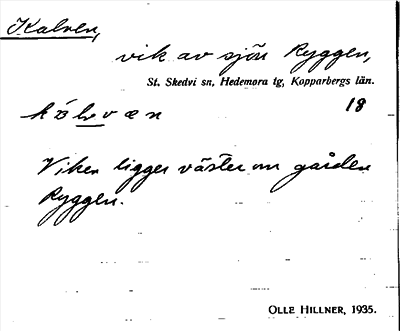 Kalven,
vik av sjön Ryggen,
St. Skedvi sn, Hedemora tg, Kopparbergs län.
18
Viken ligger väster om gården
Ryggen.
OLLE HILLNER, 1935.